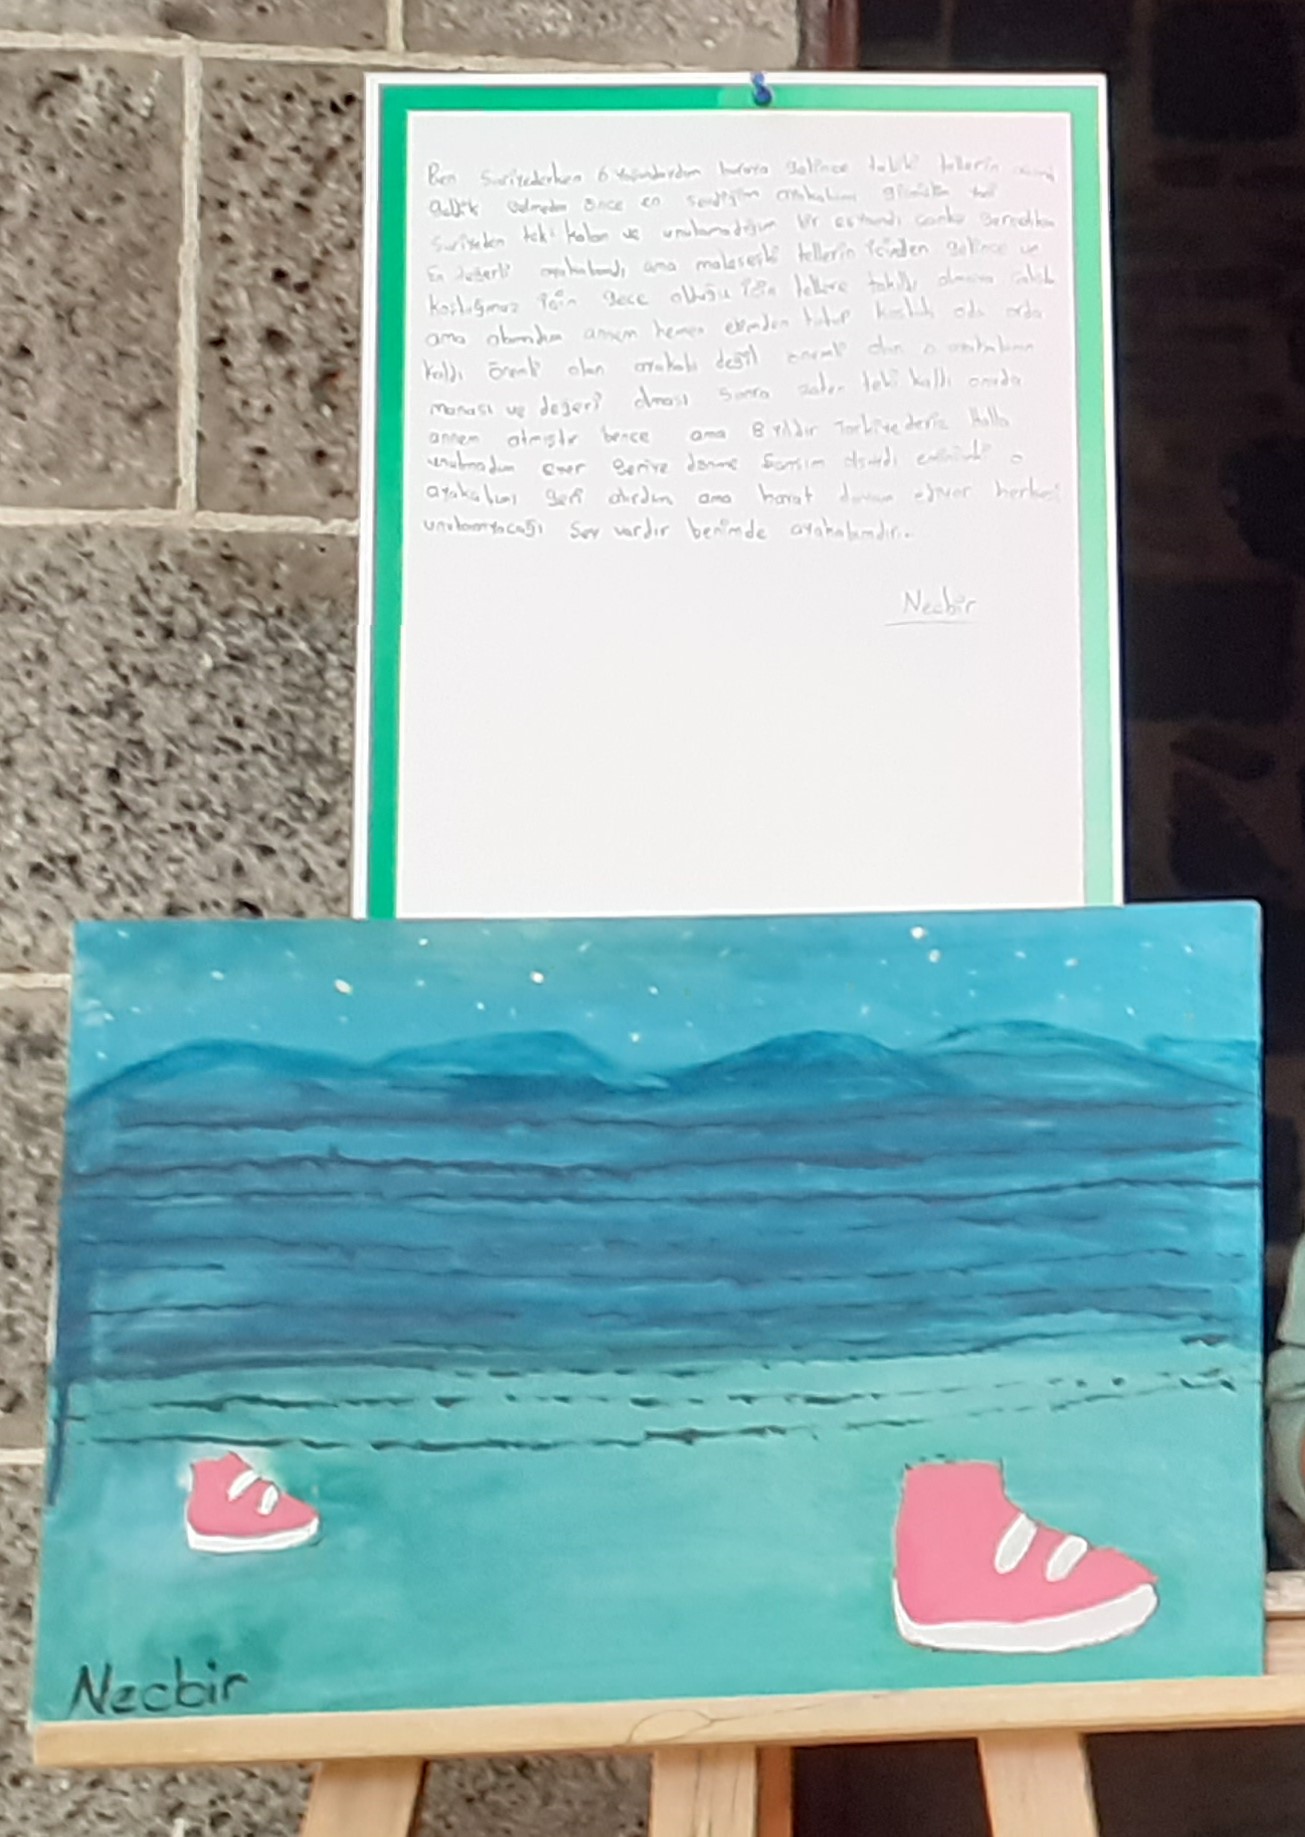 Ben Suriyederken 6 yaşındaydım buraya gelince tabiki tellerin
geldik gelmeden önce en sevdiğim ayakabım
Suriyeden tek kalan ve unutamadığım bir eşyamdı çonku gerçekten
En değerli ayakabımdı ama malesefki tellerin içinden gelince ve
koştuğmuz için gece olduğu için tellere takıldı almaya çalıştı
ama alamadım annem hemen elimden tutup koştuk oda orda
kaldı önemli olan ayakabı değil önemli olan o ayakabının
manası ve değeri olması sonra zaten teki kaldı onuda
annem atmıştır bence ama 8 yıldır Torkiyedeyiz Halla
unutmadım eyer geriye dönme şansım olsaydı eminimki o
ayakabımı geri alırdım ama hayat devam ediyor herkesi
unutamıyacağı şey vardır benimde ayakabımdır..
Necbir
Necbir